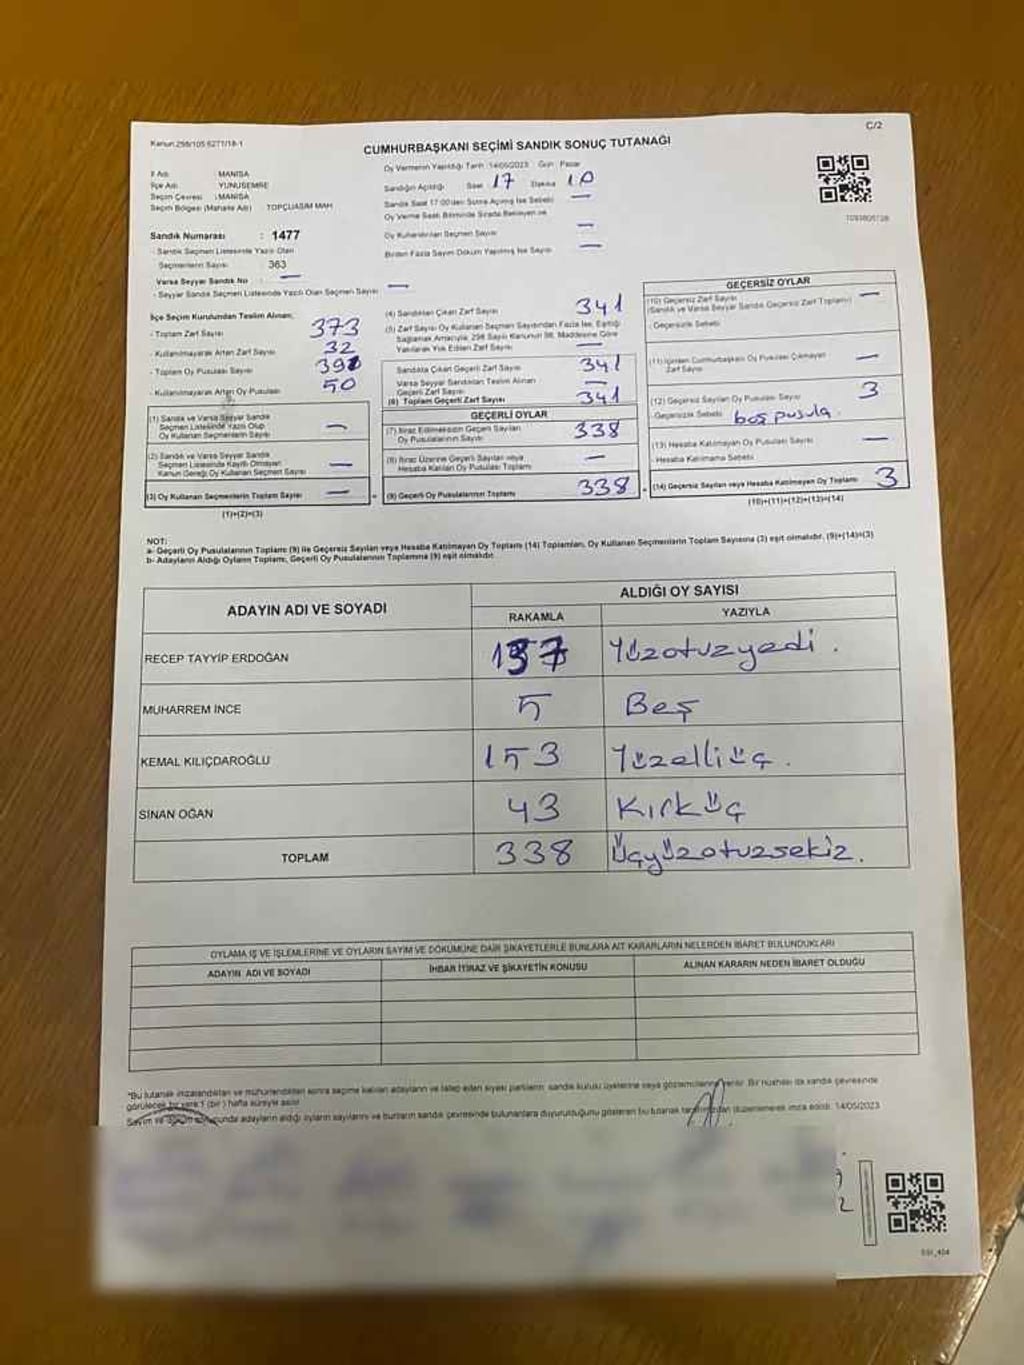 C/2
Kanun:298/105 6271/18-1
CUMHURBAŞKANI SEÇİMİ SANDIK SONUÇ TUTANAĞI
İl Adı : MANİSA
İlçe Adı : YUNUSEMRE
Seçim Çevresi : MANİSA
Seçim Bölgesi (Mahalle Adı) TOPÇUASIM MAH
Sandık Numarası : 1477
- Sandık Seçmen Listesinde Yazılı Olan
Seçmenlerin Sayısı : 363
Varsa Seyyar Sandık No : —
- Seyyar Sandık Seçmen Listesinde Yazılı Olan Seçmen Sayısı —
Oy Vermenin Yapıldığı Tarih :14/05/2023 Gün : Pazar
Sandığın Açıldığı Saat 17 Dakika 10
Sandık Saat 17:00'den Sonra Açılmış İse Sebebi —
Oy Verme Saati Bitiminde Sırada Bekleyen ve
Oy Kullandırılan Seçmen Sayısı —
Birden Fazla Sayım Döküm Yapılmış İse Sayısı —
İlçe Seçim Kurulundan Teslim Alınan;
- Toplam Zarf Sayısı 373
- Kullanılmayarak Artan Zarf Sayısı 32
- Toplam Oy Pusulası Sayısı
- Kullanılmayarak Artan Oy Pusulası 50
(1) Sandık ve Varsa Seyyar Sandık
Seçmen Listesinde Yazılı Olup
Oy Kullanan Seçmenlerin Sayısı —
(2) Sandık ve Varsa Seyyar Sandık
Seçmen Listesinde Kayıtlı Olmayan
Kanun Gereği Oy Kullanan Seçmen Sayısı —
(3) Oy Kullanan Seçmenlerin Toplam Sayısı —
(1)+(2)=(3)
(4) Sandıktan Çıkan Zarf Sayısı 341
(5) Zarf Sayısı Oy Kullanan Seçmen Sayısından Fazla İse, Eşitliği
Sağlamak Amacıyla; 298 Sayılı Kanunun 98. Maddesine Göre
Yakılarak Yok Edilen Zarf Sayısı —
Sandıkta Çıkan Geçerli Zarf Sayısı 341
Varsa Seyyar Sandıktan Teslim Alınan
Geçerli Zarf Sayısı —
(6) Toplam Geçerli Zarf Sayısı 341
GEÇERLİ OYLAR
(7) İtiraz Edilmeksizin Geçerli Sayılan
Oy Pusulalarının Sayısı 338
(8) İtiraz Üzerine Geçerli Sayılan veya
Hesaba Katılan Oy Pusulası Toplamı —
(9) Geçerli Oy Pusulalarının Toplamı 338
GEÇERSİZ OYLAR
(10) Geçersiz Zarf Sayısı
(Sandık ve Varsa Seyyar Sandık Geçersiz Zarf Toplamı) —
- Geçersizlik Sebebi:
(11) İçinden Cumhurbaşkanı Oy Pusulası Çıkmayan
Zarf Sayısı —
(12) Geçersiz Sayılan Oy Pusulası Sayısı 3
- Geçersizlik Sebebi: boş pusula.
(13) Hesaba Katılmayan Oy Pusulası Sayısı —
- Hesaba Katılmama Sebebi:
(14) Geçersiz Sayılan veya Hesaba Katılmayan Oy Toplamı 3
(10)+(11)+(12)+(13)=(14)
NOT:
a- Geçerli Oy Pusulalarının Toplamı (9) ile Geçersiz Sayılan veya Hesaba Katılmayan Oy Toplamı (14) Toplamları, Oy Kullanan Seçmenlerin Toplam Sayısına (3) eşit olmalıdır. (9)+(14)=(3)
b- Adayların Aldığı Oyların Toplamı, Geçerli Oy Pusulalarının Toplamına (9) eşit olmalıdır.
ADAYIN ADI VE SOYADI
ALDIĞI OY SAYISI
RAKAMLA YAZIYLA
RECEP TAYYİP ERDOĞAN 137 Yüzotuzyedi.
MUHARREM İNCE 5 Beş
KEMAL KILIÇDAROĞLU 153 Yüzelliüç.
SİNAN OĞAN 43 Kırküç
TOPLAM 338 Üçyüzotuzsekiz.
OYLAMA İŞ VE İŞLEMLERİNE VE OYLARIN SAYIM VE DÖKÜMÜNE DAİR ŞİKAYETLERLE BUNLARA AİT KARARLARIN NELERDEN İBARET BULUNDUKLARI
ADAYIN ADI VE SOYADI İHBAR İTİRAZ VE ŞİKAYETİN KONUSU ALINAN KARARIN NEDEN İBARET OLDUĞU
*Bu tutanak imzalandıktan ve mühürlendikten sonra seçime katılan adayların ve talep eden siyasi partilerin sandık kurulu üyelerine veya gözlemcilerine verilir. Bir nüshası da sandık çevresinde
görülecek bir yere 1 (bir) hafta süreyle asılır.
Sayım ve döküm sonucunda adayların aldığı oyların sayılarını ve bunların sandık çevresinde bulunanlara duyurulduğunu gösteren bu tutanak tarafımızdan düzenlenerek imza edildi. 14/05/2023